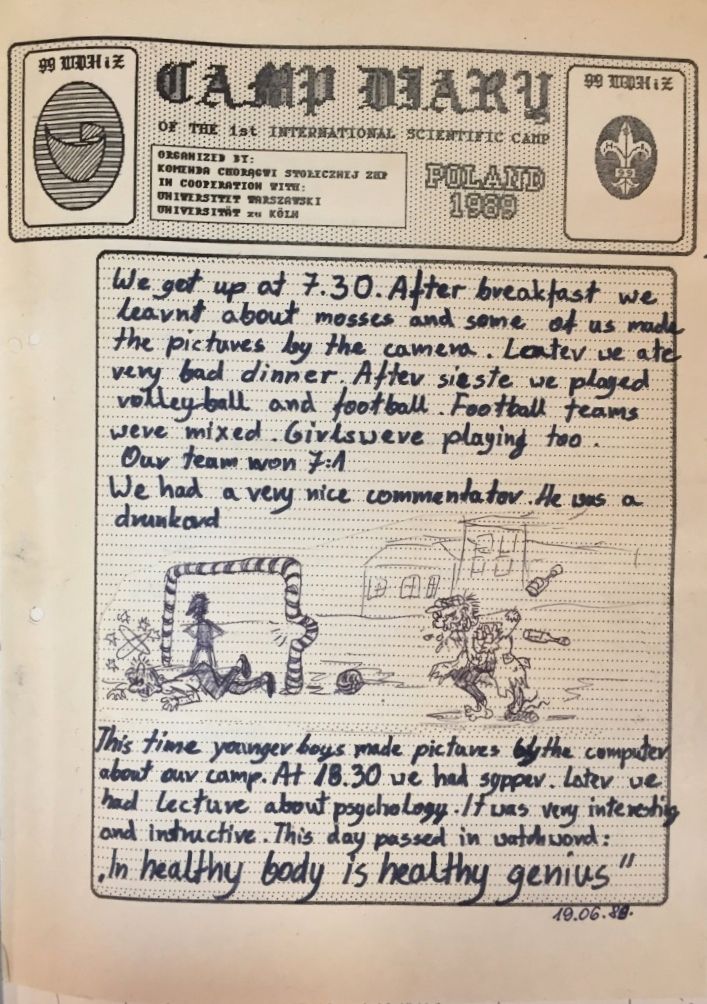 99 WDHiZ
CAMP DIARY
OF THE 1st INTERNATIONAL SCIENTIFIC CAMP
ORGANIZED BY:
KOMENDA CHORĄGWI STOŁECZNEJ ZHP
IN COOPERATION WITH:
UNIWERSYTET WARSZAWSKI
UNIVERSITÄT zu KÖLN
POLAND
1989
99 WDHiZ
99
We get up at 7.30. After breakfast we
learnt about mosses and some of us made
the pictures by the camera. Leater we ate
very bad dinner. After sieste we played
volley-ball and football. Football teams
were mixed. Girls were playing too.
Our team won 7:1
We had a very nice commentator. He was a
drunkard
This time younger boys made pictures by the computer
about our camp. At 18.30 we had sypper. Later we
had lecture about psychology. It was very interesting
and instructive. This day passed in watchword:
„In healthy body is healthy genius"
19.06.89.